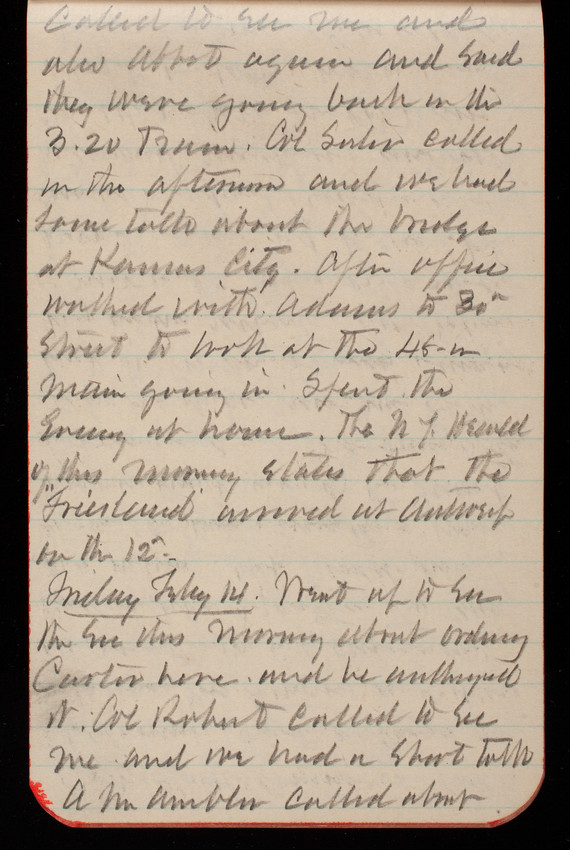 Called to see me and
also Abbot again and said
they were going back on the
3.20 Train. Col called
in the afternoon and we had
some talk about the bridge
at Kansas City. After office
walked with Adams to 30"
Street to look at the 48-in
main going in. Spent the
Evening at home. The N Y Herald
of this morning states that the
"Friesland" arrived at Antwerp
on the 12"-
Friday Feby 14. Went up to see
the Sec this morning about ordering
Carter here and he authorized
it. Col Robert called to see
me and we had a short talk
A Mr Ambler called about